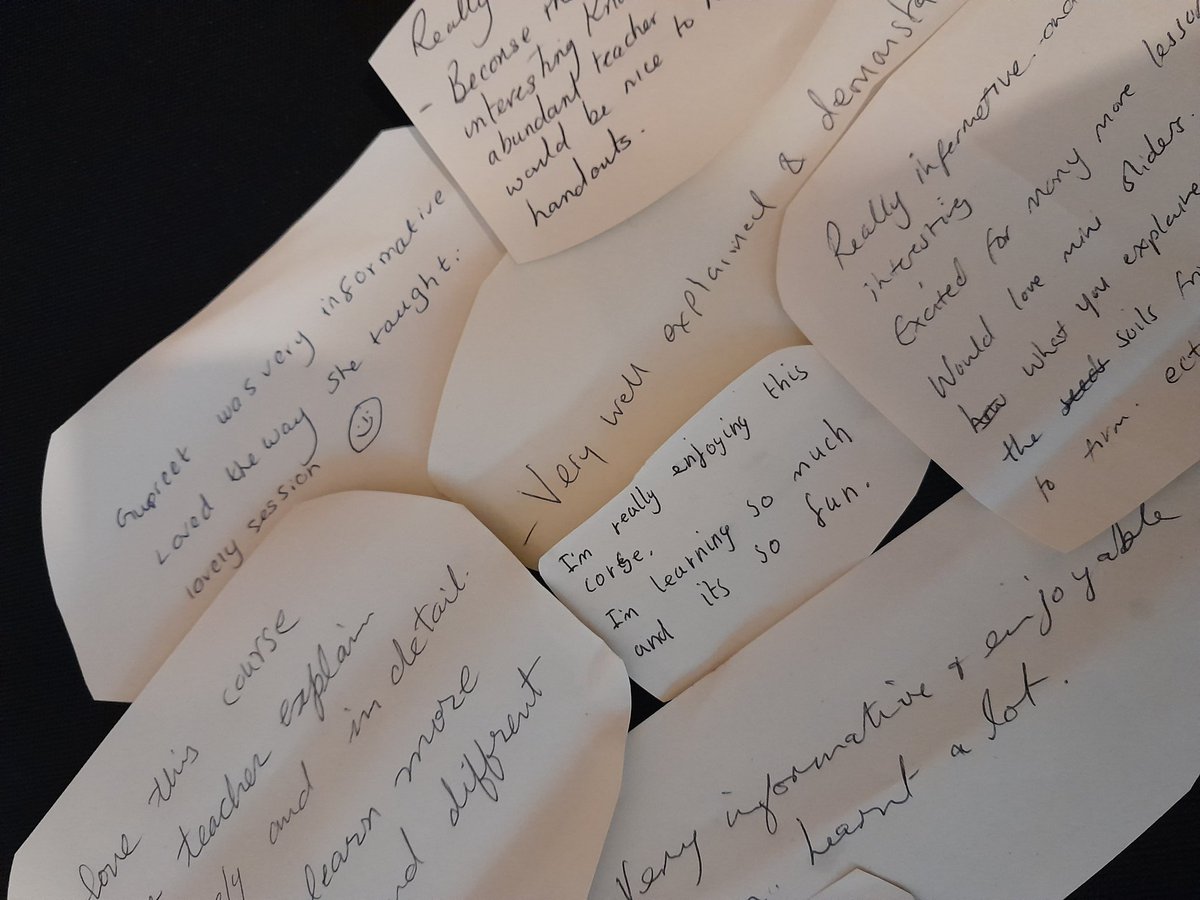 Really
- Beconse
interesting
abundant teacher to
would be nice
handouts.
Gurpreet was very informative
Loved the way she taught.
lovely session
- Very well explained & demonstra
Really informative and
interesting
Excited for many more lesso
Would love mini sliders.
what you explaine
the soils
to firm. ect
I'm really enjoying this
corse.
I'm learning so much
and its so fun.
love this course
teacher explain
ly and in detail.
learn more
nd diffrent
Very informative + enjoyable
learnt a lot.